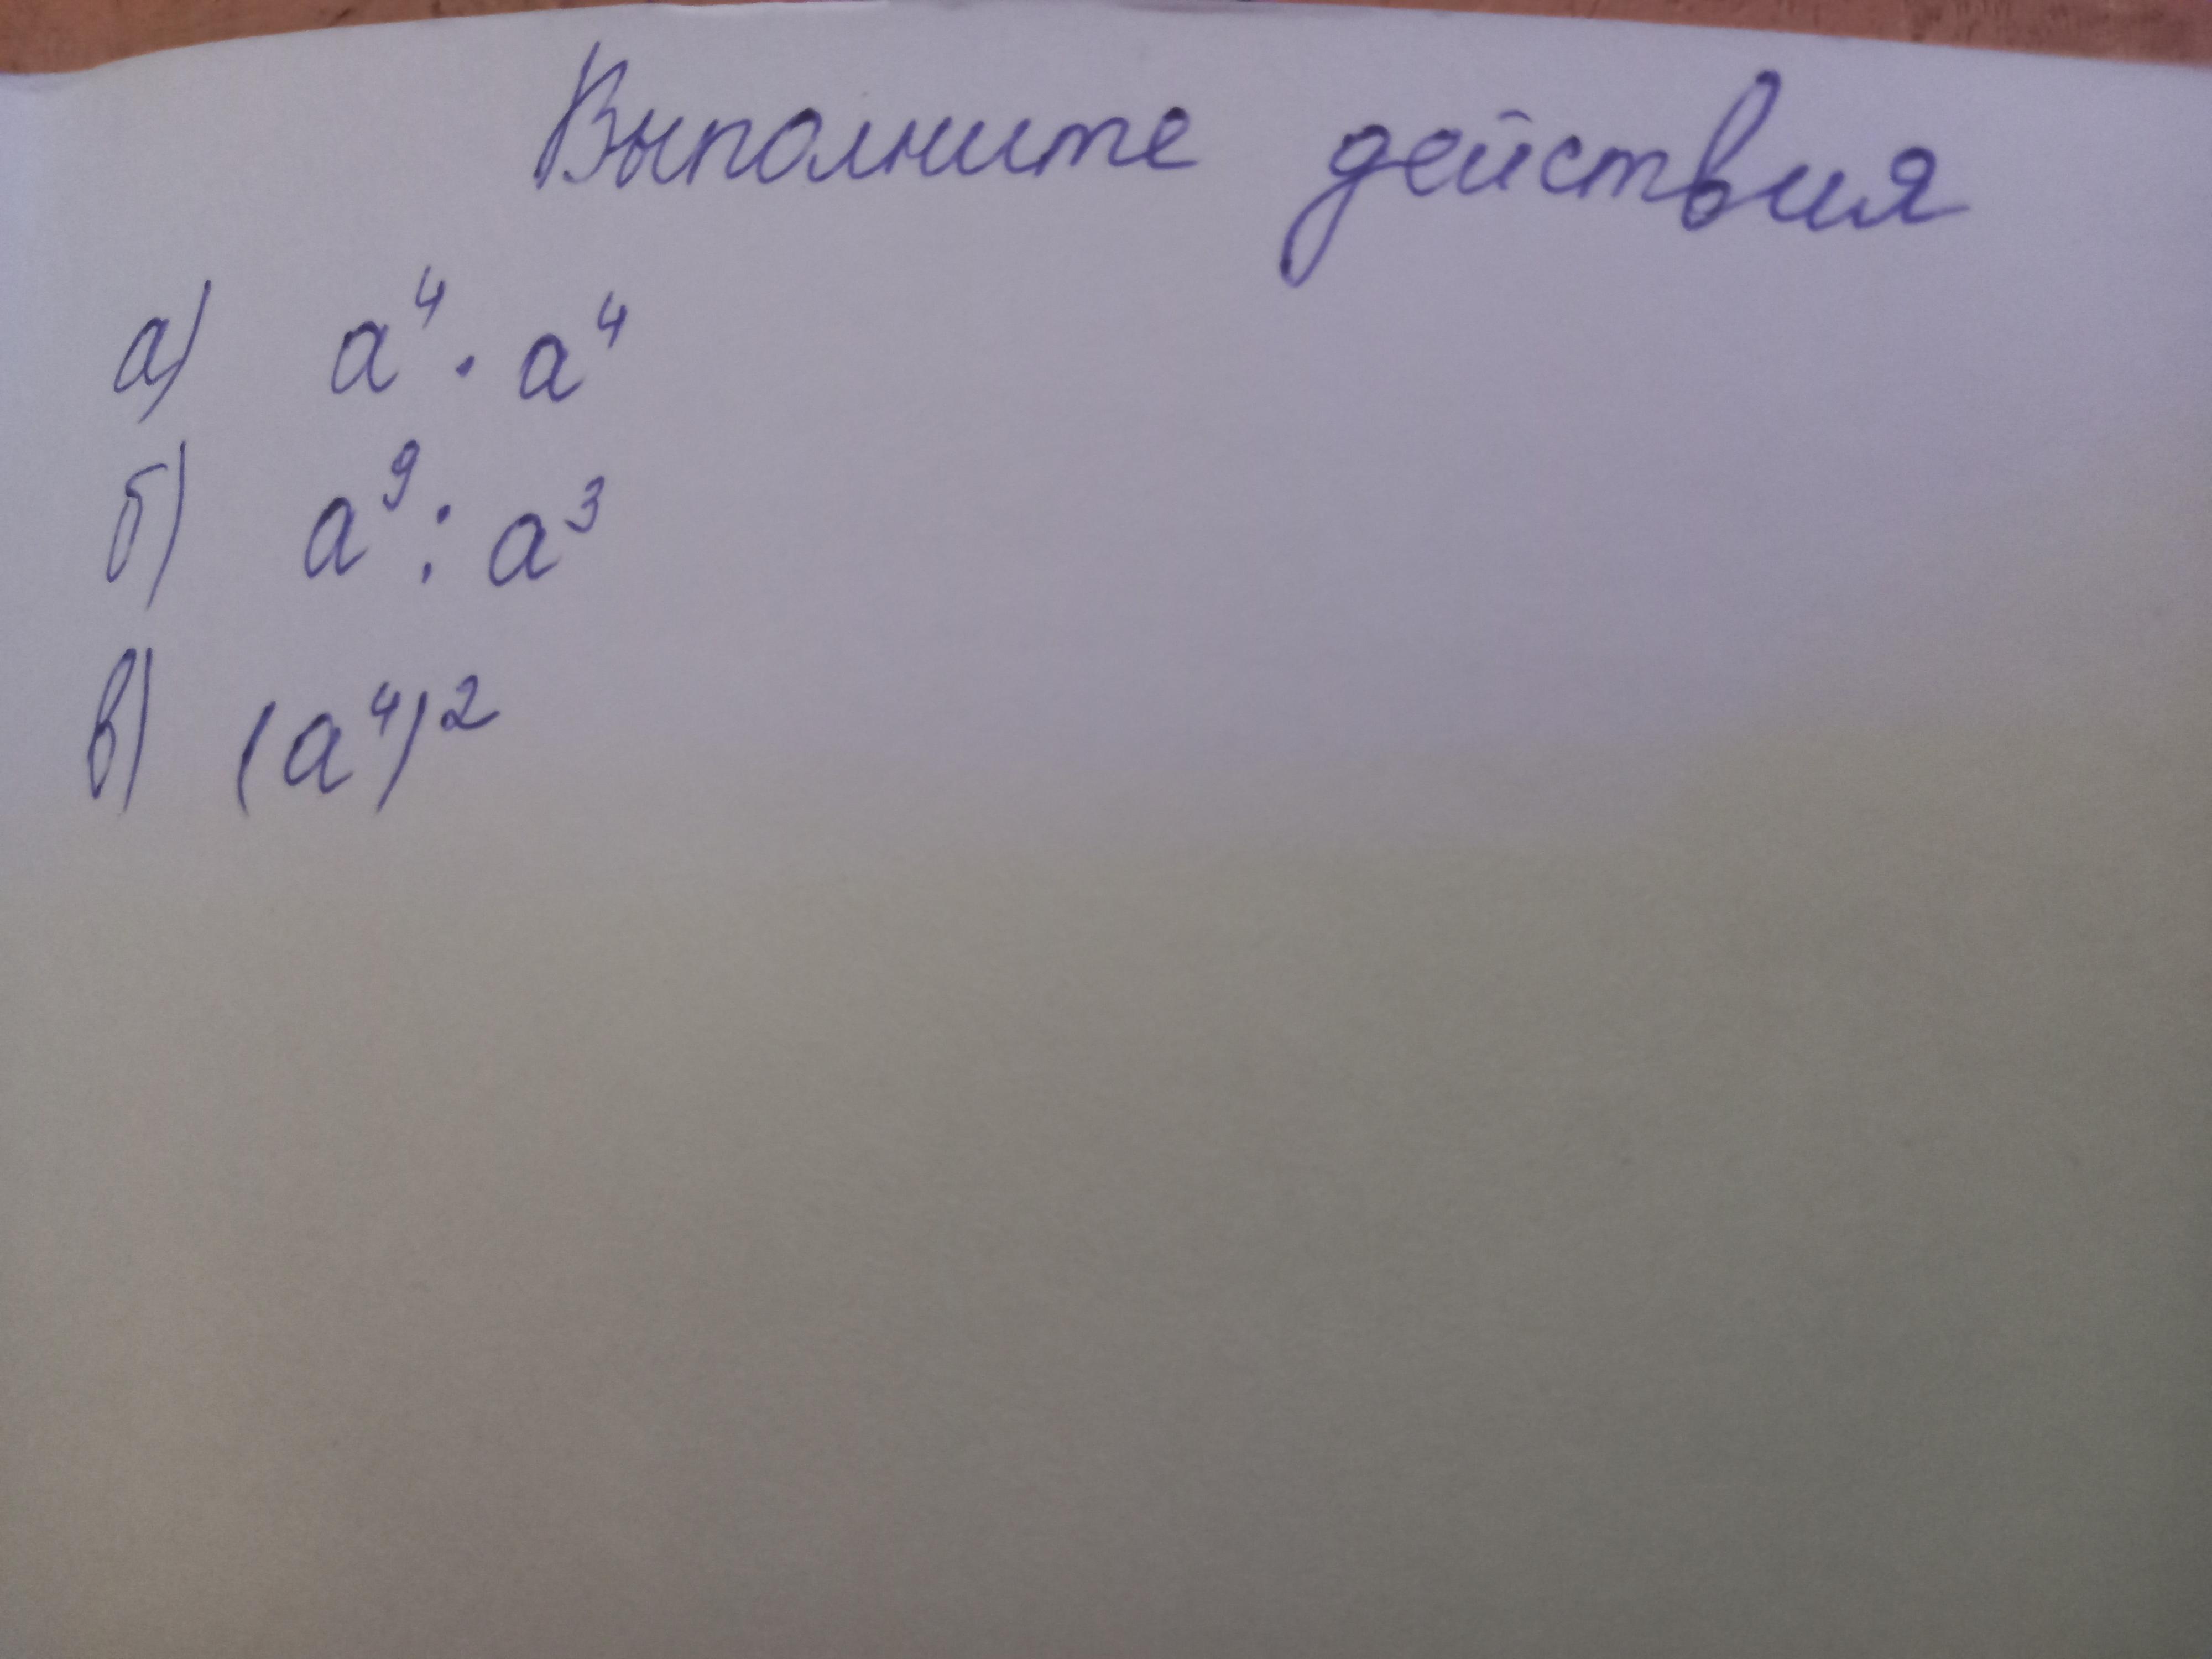 Выполните действия
а) a⁴ · a⁴
б) a⁹ : a³
в) (a⁴)²